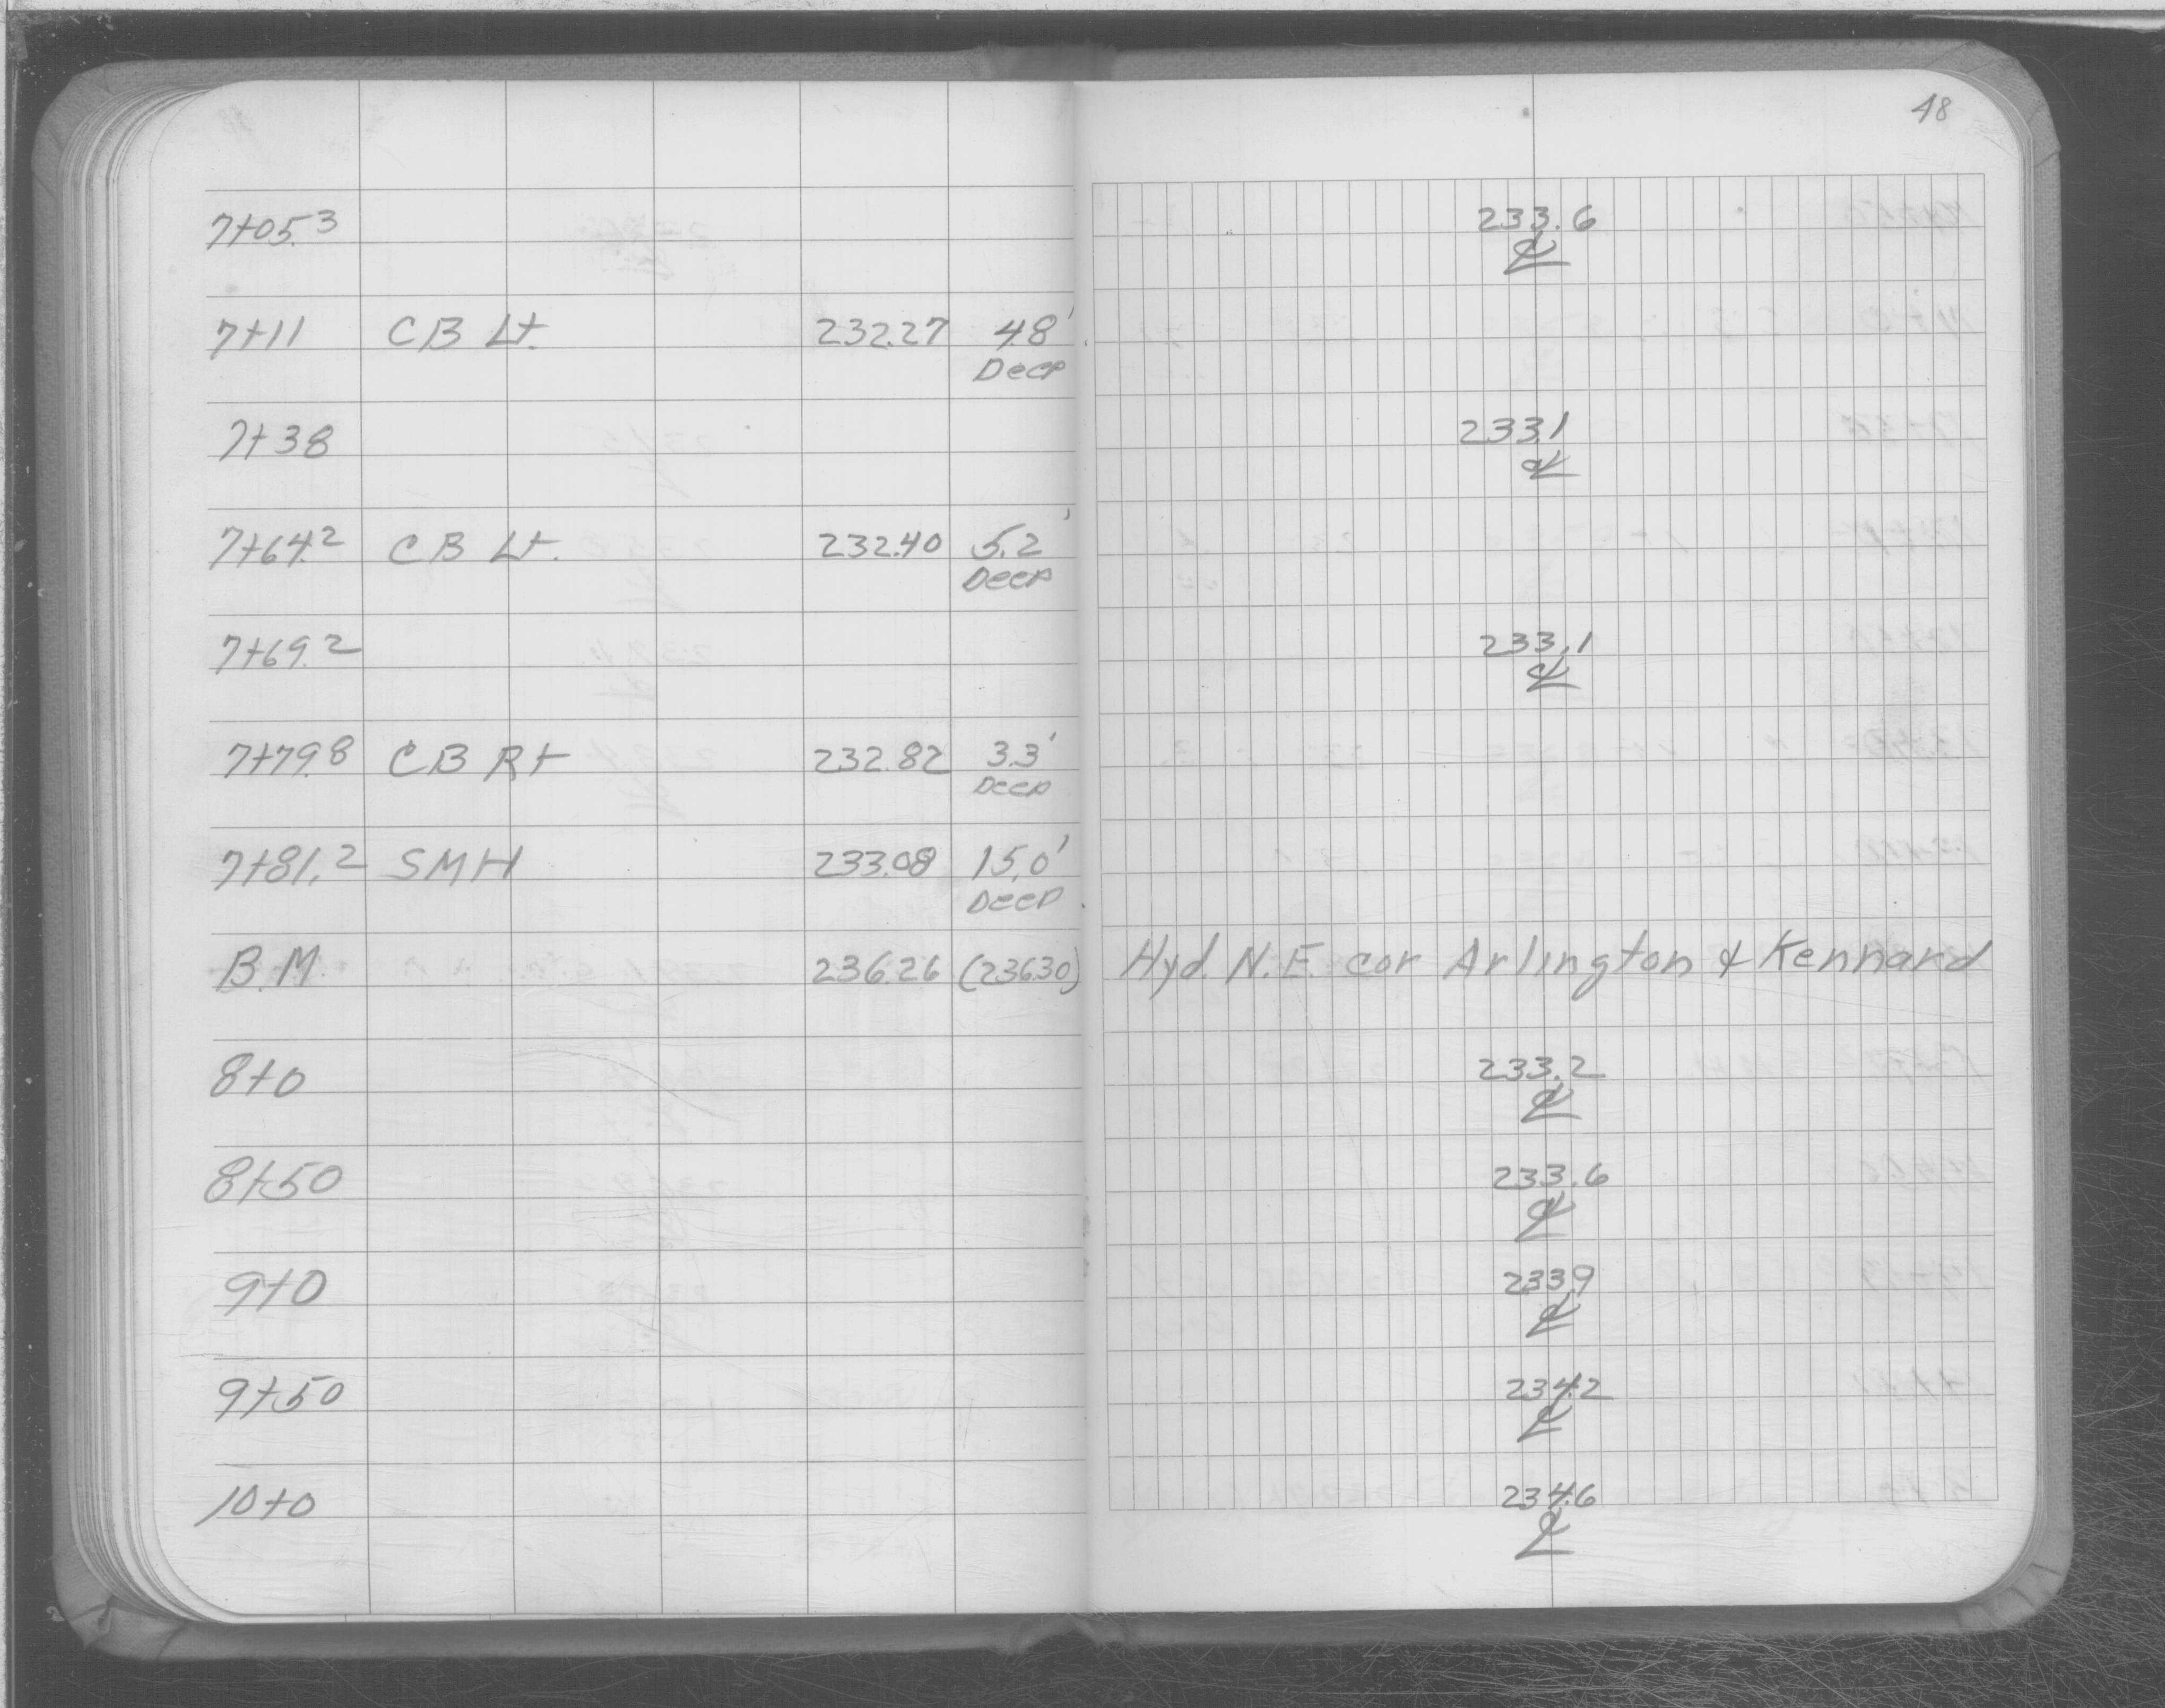 48
7+05.3 233.6
℄
7+11 CB Lt. 232.27 4.8'
Deep
7+38 233.1
℄
7+64.2 CB Lt. 232.40 5.2'
Deep
7+69.2 233.1
℄
7+79.8 CB Rt 232.82 3.3'
Deep
7+81.2 SMH 233.08 15.0'
Deep
B.M. 236.26 (236.30) Hyd. N.E. cor Arlington & Kennard
8+0 233.2
℄
8+50 233.6
℄
9+0 233.9
℄
9+50 234.2
℄
10+0 234.6
℄